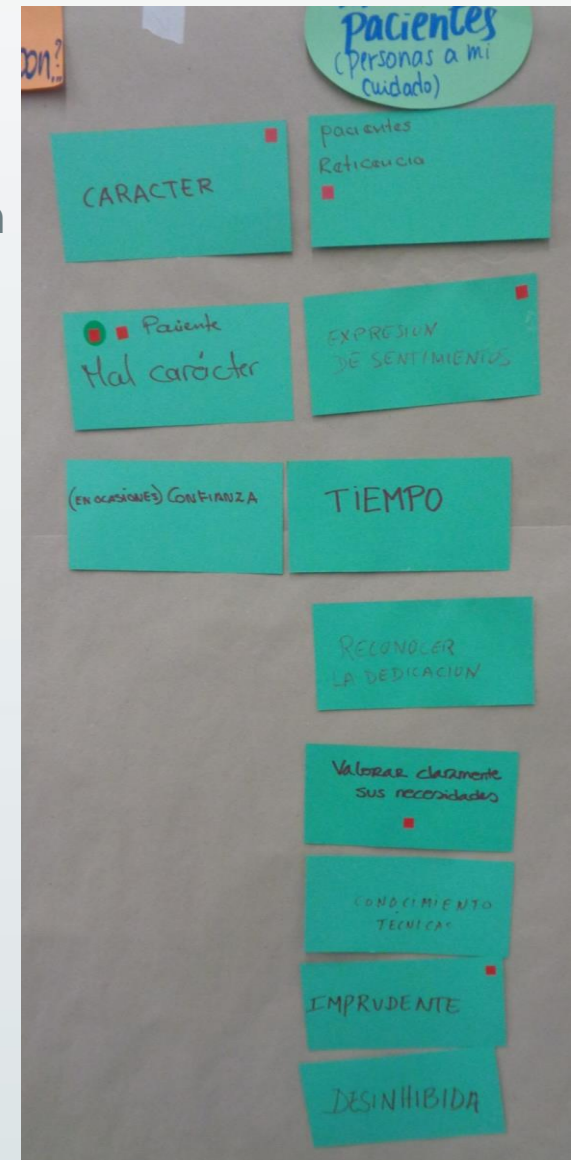 ON?
Pacientes
(Personas a mi
Cuidado)
CARACTER
pacientes
Reticencia
Paciente
Mal carácter
EXPRESION
DE SENTIMIENTOS
(EN OCASIONES) CONFIANZA
TIEMPO
RECONOCER
LA DEDICACION
Valorar claramente
sus necesidades
CONOCIMIENTO
TECNICAS
IMPRUDENTE
DESINHIBIDA